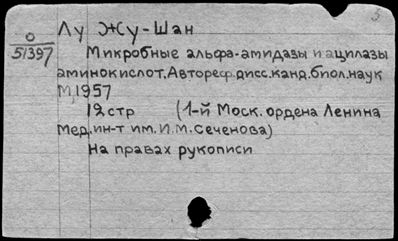 3
Лу Жу-Шан
О
51397
Микробные альфа-амидазы и ацилазы
аминокислот. Автореф. дисс. канд. биол. наук
М, 1957
12 стр (1-й Моск. ордена Ленина
Мед. ин-т им. И.М. Сеченова)
На правах рукописи